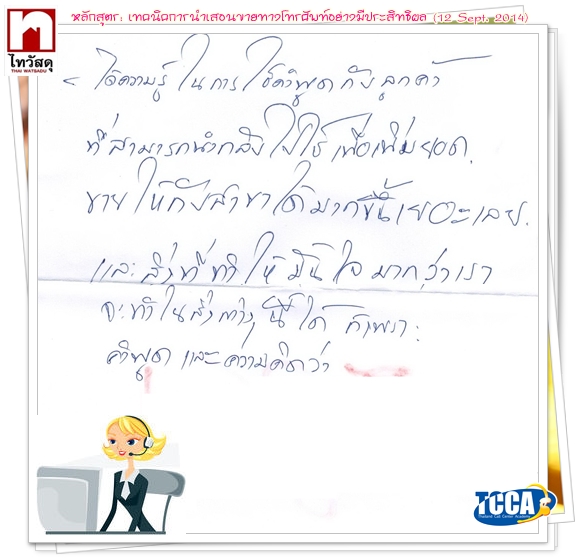 หลักสูตร: เทคนิคการนำเสนอขายทางโทรศัพท์อย่างมีประสิทธิผล (12 Sept. 2014)
ไทวัสดุ
THAI WATSADU
- ได้ความรู้ ในการ ใช้คำพูดกับลูกค้า
ที่สามารถนำกลับไปใช้ เพื่อเพิ่มยอด
ขาย ให้กับสาขาได้มากขึ้นเยอะเลย.
และ สิ่งที่ทำ ให้ มั่นใจ มากว่าเรา
จะทำในสิ่งต่างๆนี้ได้ ก็เพราะ
คำพูด และความคิดว่า
TCCA
Thailand Call Center Academy